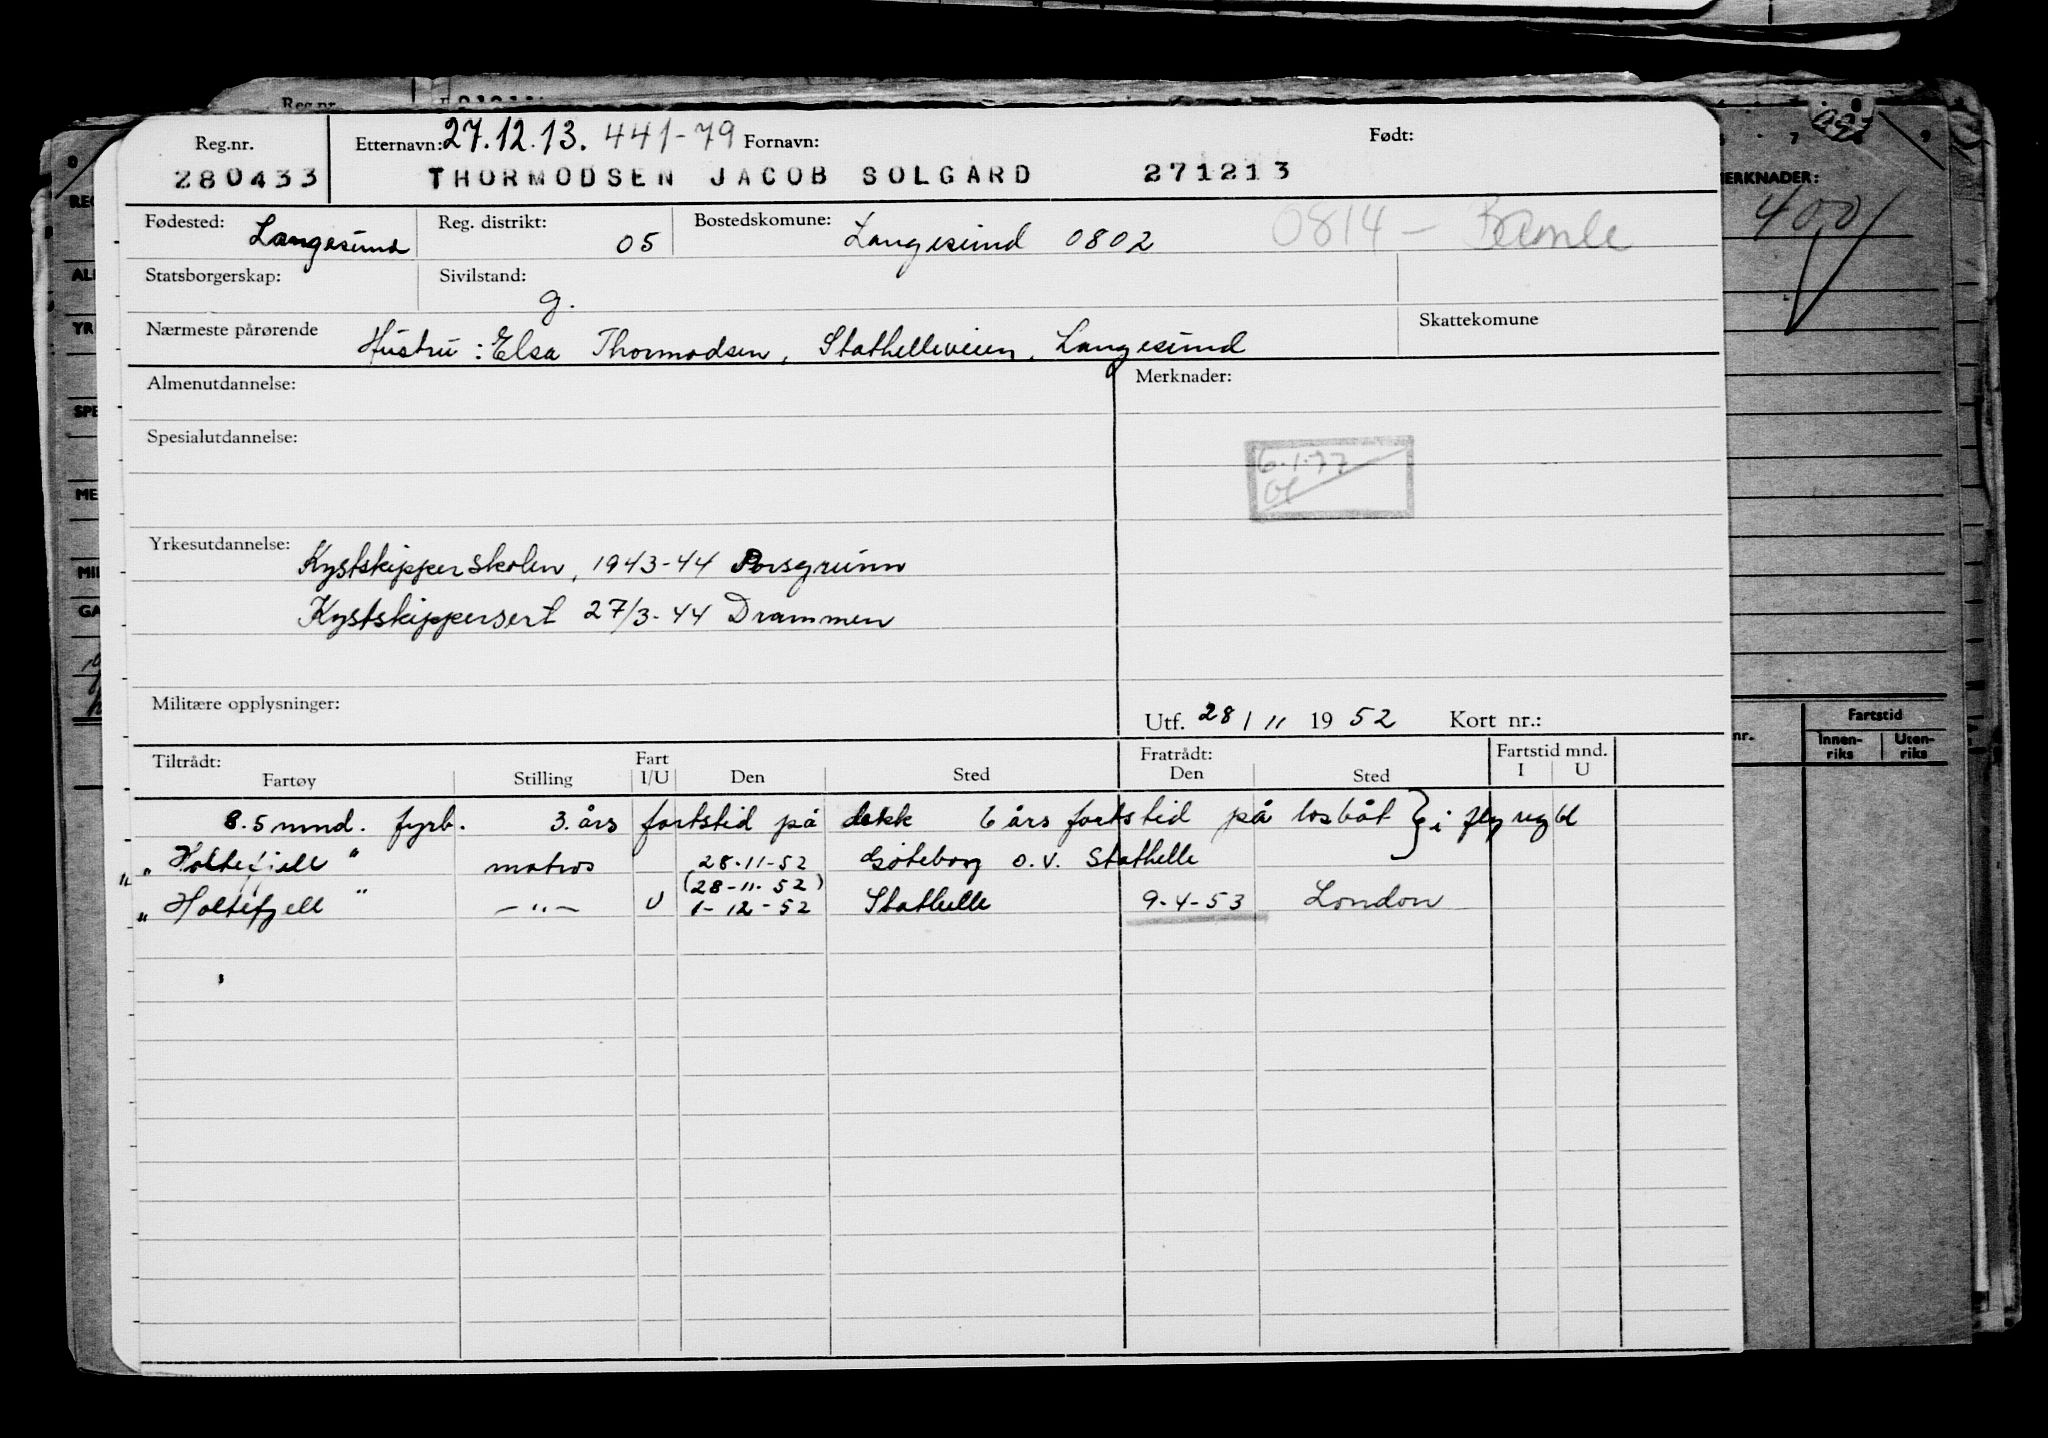 Reg.nr.
Reg.nr. Etternavn: 27.12.13. 441-79 Fornavn: Født:
280433 THORMODSEN JACOB SOLGARD 271213
Fødested: Langesund Reg. distrikt: 05 Bostedskomune: Langesund 0802 0814 - Bamle
Statsborgerskap: Sivilstand: g.
Nærmeste pårørende Hustru: Elsa Thormodsen, Stathelleveien, Langesund Skattekomune
Almenutdannelse: Merknader:
Spesialutdannelse:
6.1.77
Yrkesutdannelse: Kystskipperskolen, 1943-44 Porsgrunn
Kystskippersert 27/3-44 Drammen
Militære opplysninger: Utf. 28/11 1952 Kort nr.:
Tiltrådt: Fart Fratrådt: Fartstid mnd.
Fartøy Stilling I/U Den Sted Den Sted I U
8.5 mnd. fyrb. 3. års fartstid på dekk 6 års fartstid på losbåt } i flg
"Holtefjell" matros 28-11-52 Göteborg o.v. Stathelle
(28-11-52)
"Holtefjell" -"- U 1-12-52 Stathelle 9-4-53 London
MERKNADER:
400
Fartstid
nr. Innen-riks Uten-riks